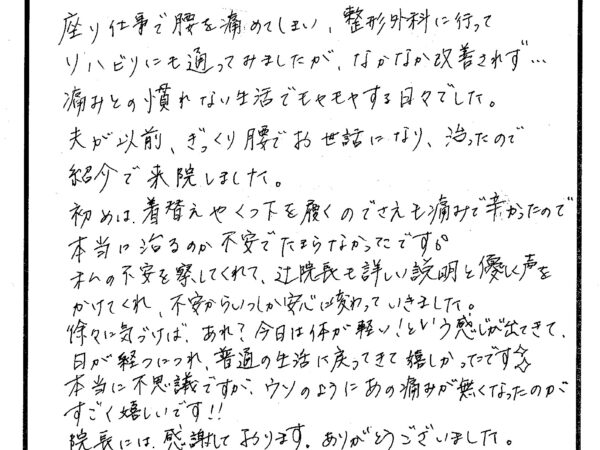 座り仕事で腰を痛めてしまい、整形外科に行って
リハビリにも通ってみましたが、なかなか改善されず…
痛みとの慣れない生活でモヤモヤする日々でした。
夫が以前、ぎっくり腰でお世話になり、治ったので
紹介で来院しました。
初めは、着替えやくつ下を履くのでさえも痛みで辛かったので
本当に治るのか不安でたまらなかったです。
私の不安を察してくれて、辻院長も詳しい説明と優しく声を
かけてくれ、不安からいつしか安心に変わっていきました。
徐々に気づけば、あれ?今日は体が軽い!という感じが出てきて、
日が経つにつれ、普通の生活に戻ってきて嬉しかったです☆
本当に不思議ですが、ウソのようにあの痛みが無くなったのが
すごく嬉しいです!!
院長には、感謝しております。ありがとうございました。